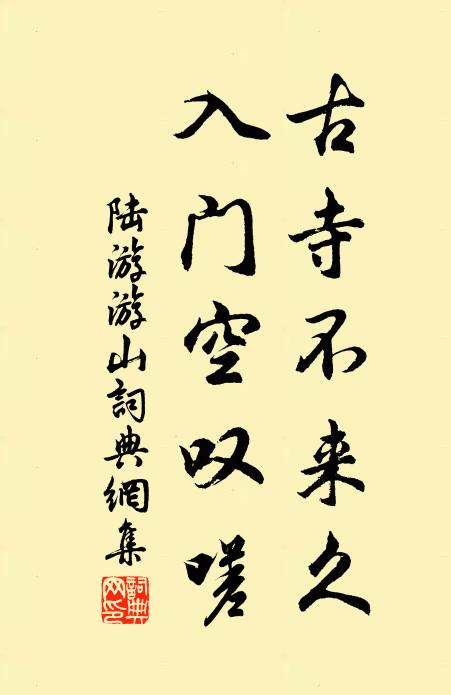 古寺不来久
入门空叹嗟
陆游游山詞典網集
詞典网印